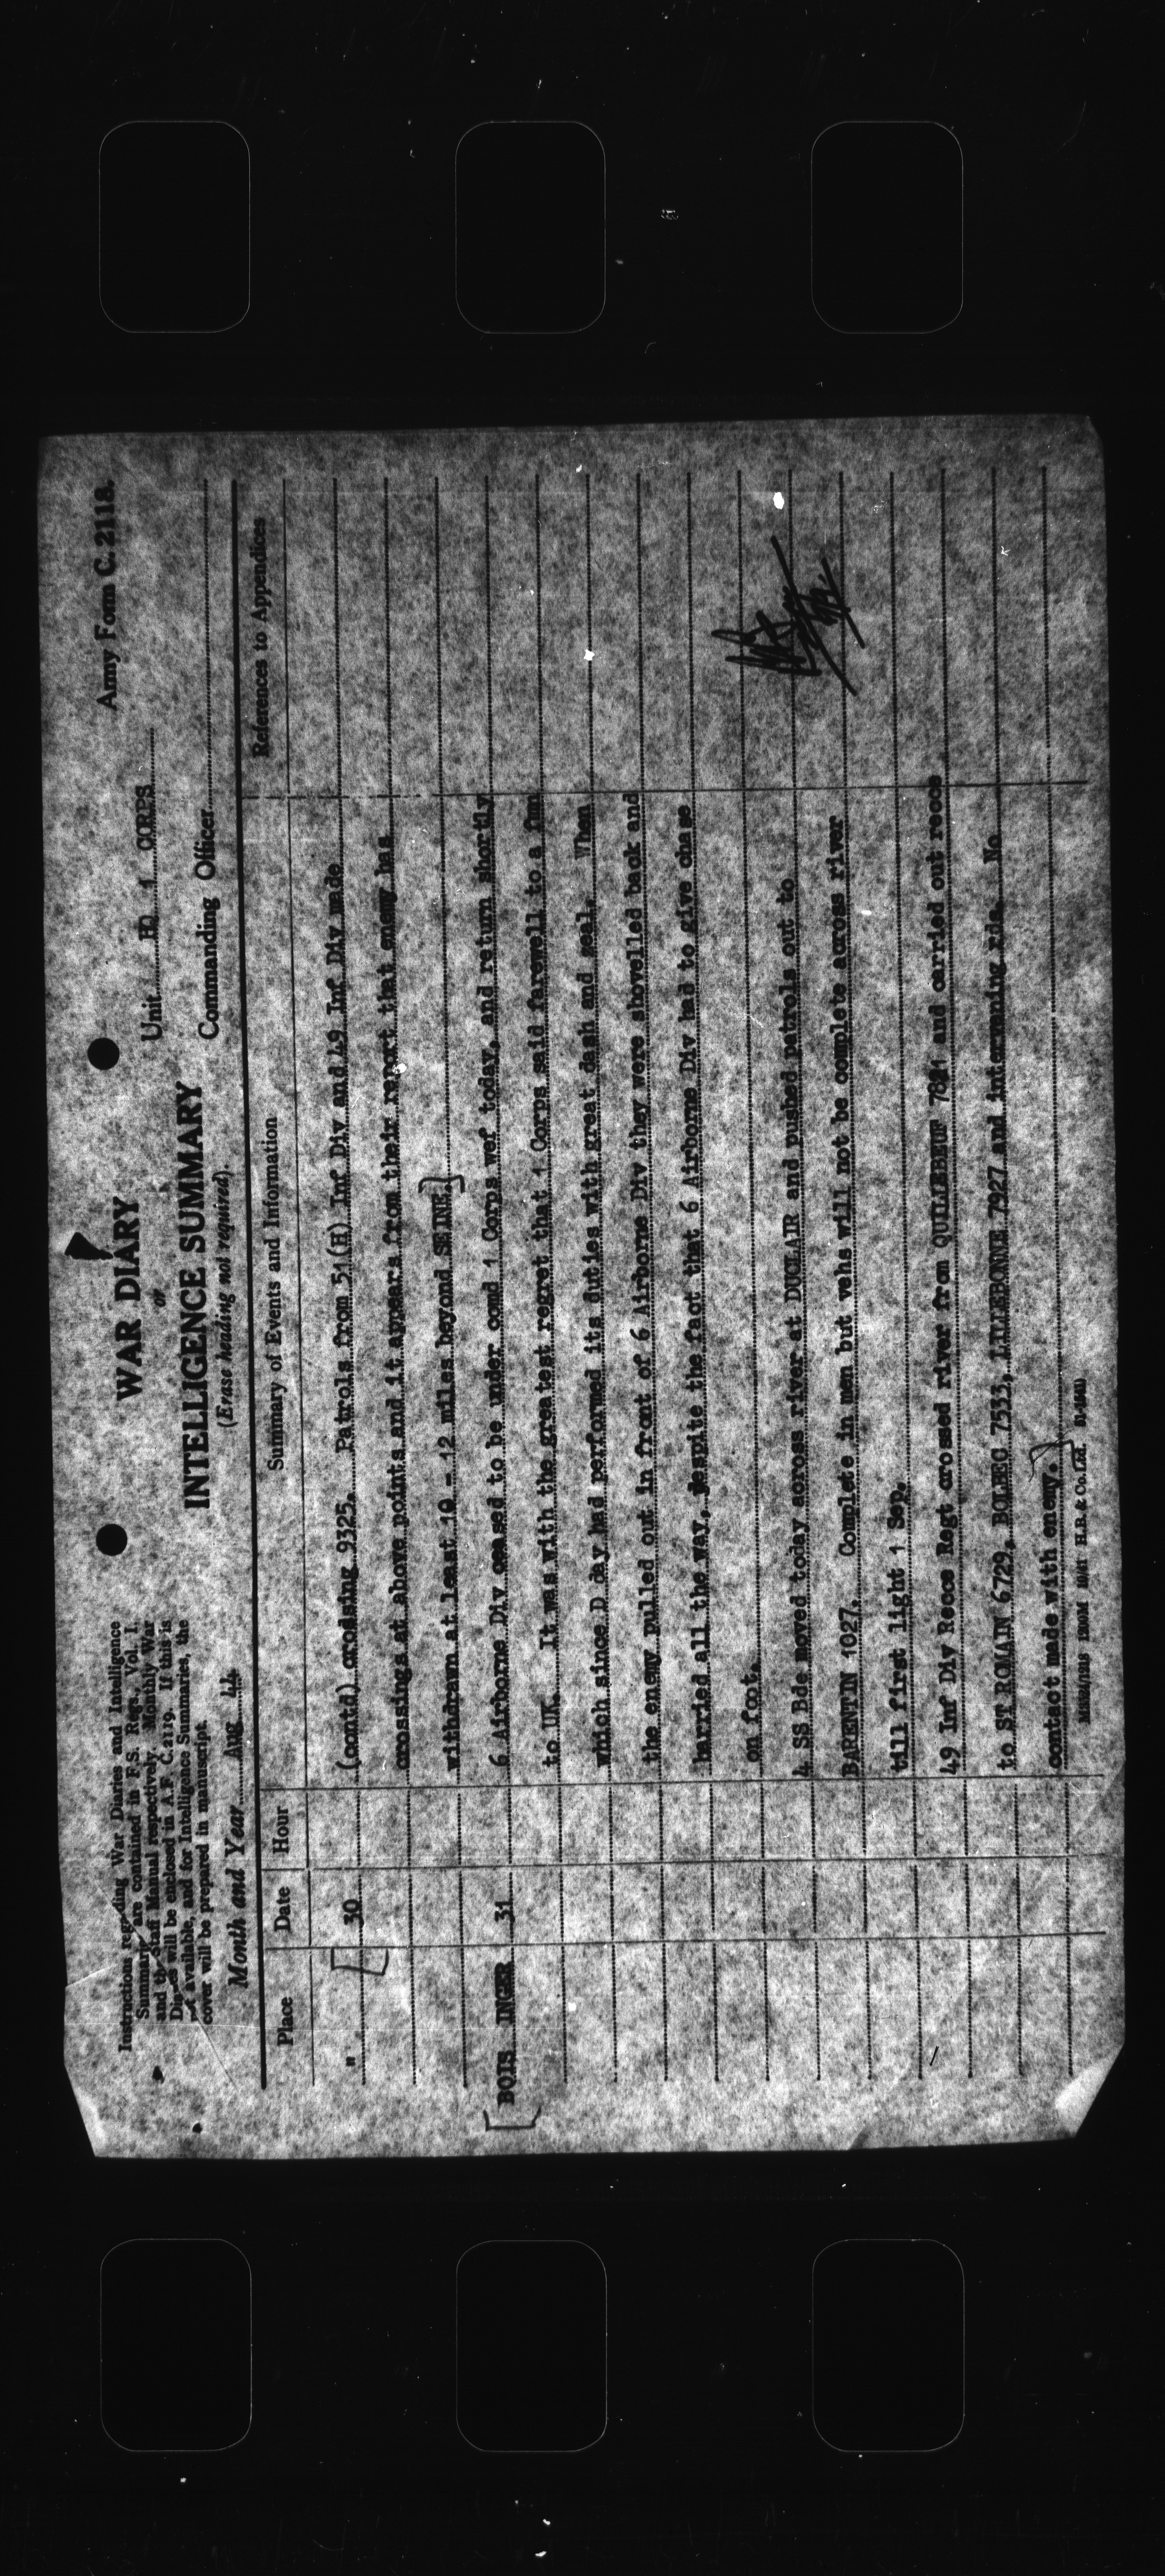 Army Form C. 2118.
Instructions regarding War Diaries and Intelligence
Summaries are contained in F.S. Regs., Vol. I.
and the Staff Manual respectively. Monthly War
Diaries will be enclosed in A.F. C.2119. If this is
not available, and for Intelligence Summaries, the
cover will be prepared in manuscript.
WAR DIARY
or
INTELLIGENCE SUMMARY
(Erase heading not required).
Unit HQ 1 CORPS
Commanding Officer
Month and Year Aug 44
Place Date Hour Summary of Events and Information References to Appendices
" 30 (contd) crossing 9325. Patrols from 51(H) Inf Div and 49 Inf Div made
crossings at above points and it appears from their report that enemy has
withdrawn at least 10 - 12 miles beyond SEINE.
BOIS INGER 31 6 Airborne Div ceased to be under comd 1 Corps wef today, and return shortly
to UK. It was with the greatest regret that 1 Corps said farewell to a fmn
which since D day had performed its duties with great dash and zeal. When
the enemy pulled out in front of 6 Airborne Div they were shovelled back and
harried all the way, despite the fact that 6 Airborne Div had to give chase
on foot.
4 SS Bde moved today across river at DUCLAIR and pushed patrols out to
BARENTIN 1027. Complete in men but vehs will not be complete across river
till first light 1 Sep.
49 Inf Div Recce Regt crossed river from QUILLEBEUF and carried out recce
to ST ROMAIN 6729, BOLBEC 7533, LILLEBONNE 7927 and intervening rds. No
contact made with enemy.
1200M 10/41 H.B. & Co. Ltd.